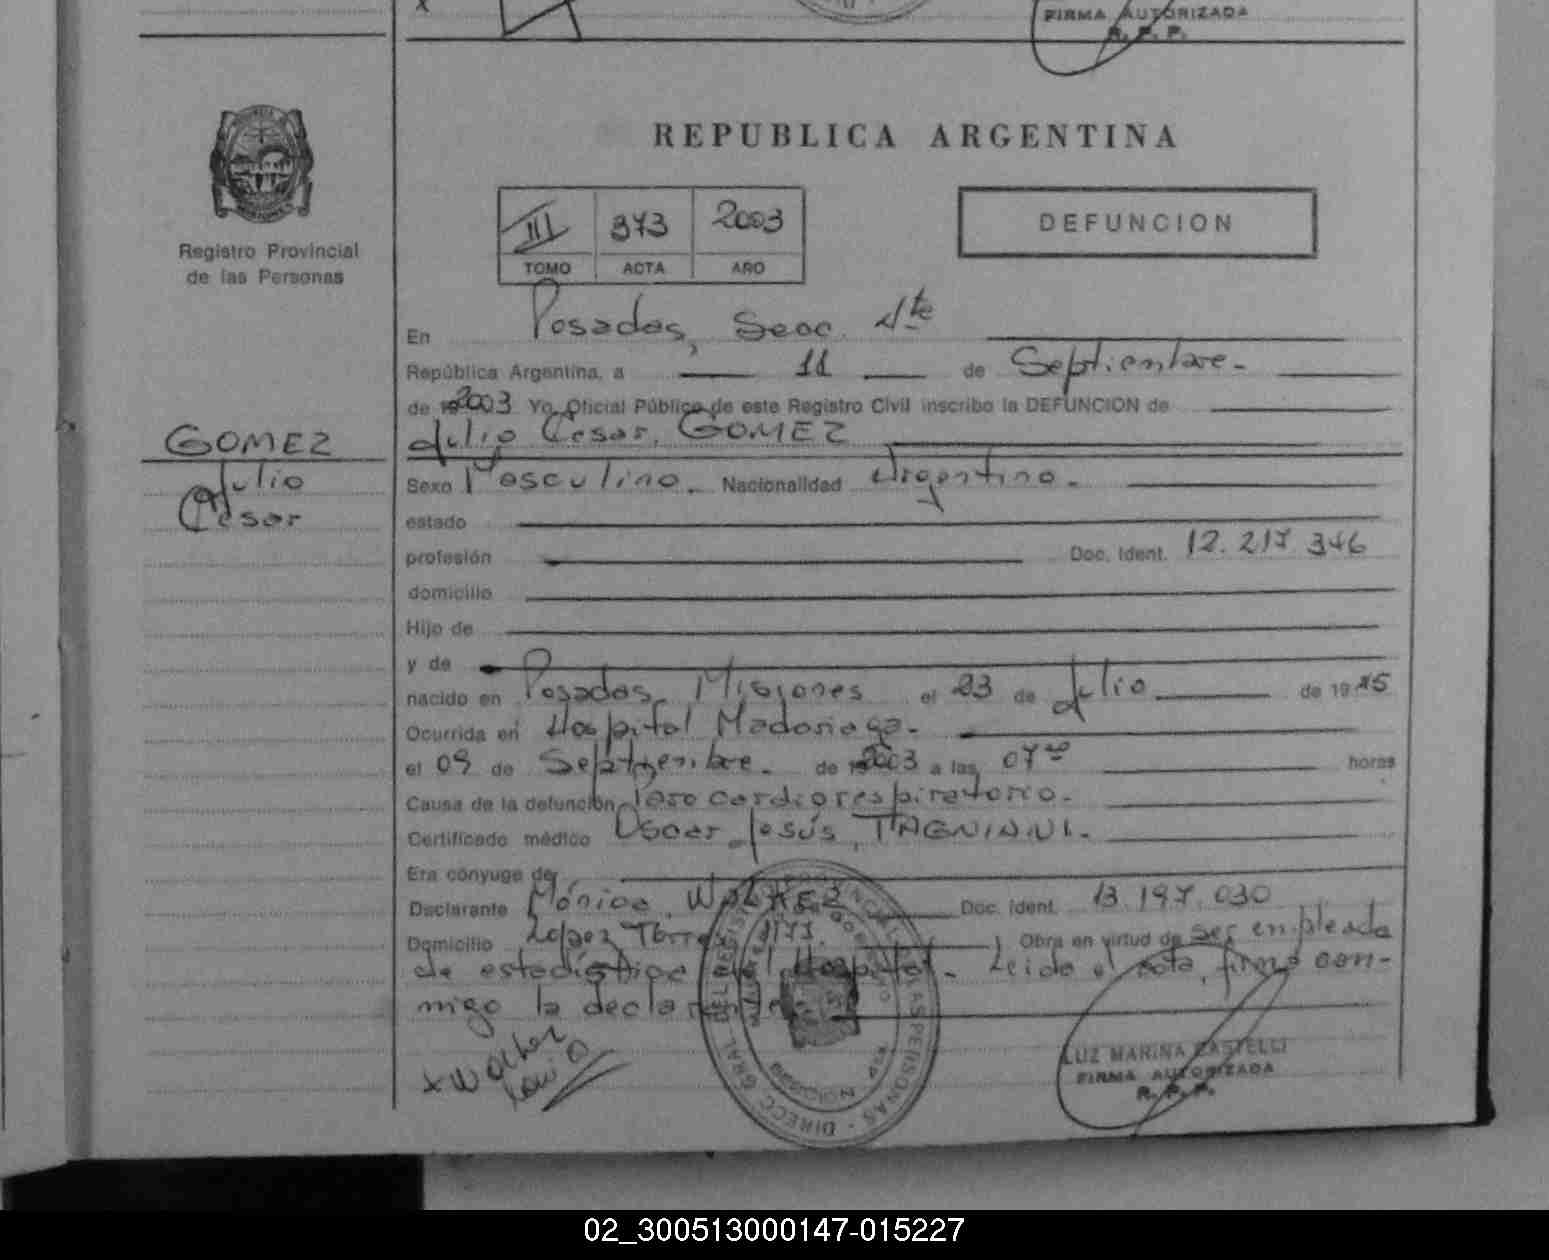 FIRMA AUTORIZADA
R. P. P.
REPUBLICA ARGENTINA
III 373 2003
TOMO ACTA AÑO
DEFUNCION
Registro Provincial
de las Personas
En Posadas, Secc. 4te
República Argentina, a 11 de Septiembre.
de 2003 Yo, Oficial Público de este Registro Civil inscribo la DEFUNCION de
Julio Cesar, GOMEZ
GOMEZ
Julio
Cesar
Sexo Masculino. Nacionalidad Argentino.
estado
profesión Doc. Ident. 12.217.346
domicilio
Hijo de
y de
nacido en Posadas, Misiones el 23 de Julio de 19
Ocurrida en Hospital Madariaga.
el 09 de Septiembre. de 2003 a las 07 horas
Causa de la defunción Paro cardiorespiratorio.
Certificado médico Oscar Jesús, TAGNINI.
Era cónyuge de
Declarante Mónica, Doc. Ident. 13.197.030
Domicilio López Torres Obra en virtud de ser empleada
de estadística del Hospital. Leida el acta, firma con-
migo la declarante.
LUZ MARINA CASTELLI
FIRMA AUTORIZADA
R. P. P.
02_300513000147-015227